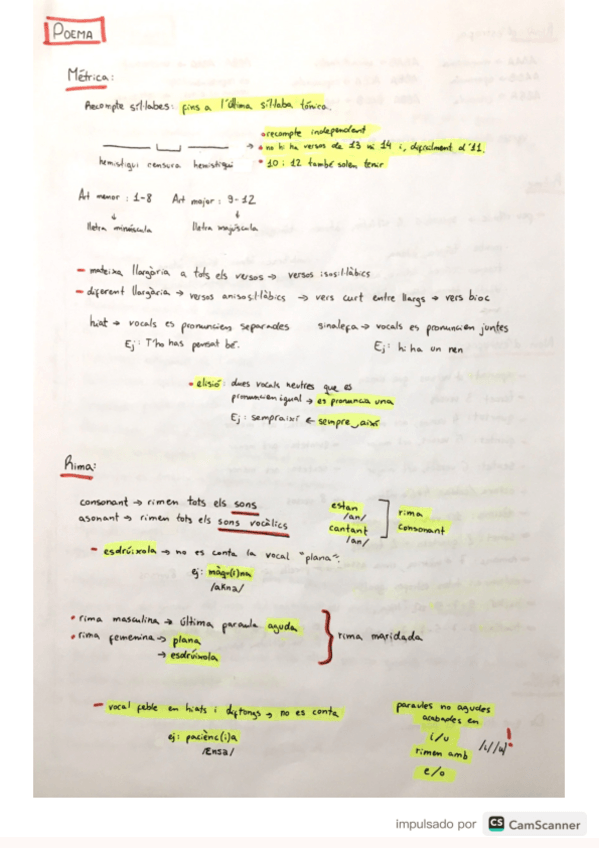 POEMA
Mètrica:
Recompte síl·labes: fins a l'última síl·laba tònica.
recompte independent
no hi ha versos de 13 ni 14 i, dificilment d'11.
10 i 12 també solen tenir
hemistiqui censura hemistiqui
Art menor: 1-8 Art major: 9-12
lletra minúscula lletra majúscula
- mateixa llargària a tots els versos → versos isosil·làbics
- diferent llargària → versos anisosil·làbics → vers curt entre llargs → vers bioc
hiat → vocals es pronuncien separades sinalefa → vocals es pronuncien juntes
Ej: T'ho has pensat bé. Ej: hi ha un nen
• elisió: dues vocals neutres que es
pronuncien igual → es pronuncia una
Ej: sempraixí ← sempre‿així
Rima:
consonant → rimen tots els sons
asonant → rimen tots els sons vocàlics
estan
/an/
cantant
/an/
rima
consonant
- esdrúixola → no es conta la vocal "plana".
ej: màqu(i)na
/akna/
• rima masculina → última paraula aguda
• rima femenina → plana
→ esdrúixola
rima maridada
- vocal feble en hiats i diftongs → no es conta
ej: paciènc(i)a
/Ensa/
paraules no agudes
acabades en
i/u
rimen amb
e/o
/i//u/!
impulsado por CS CamScanner